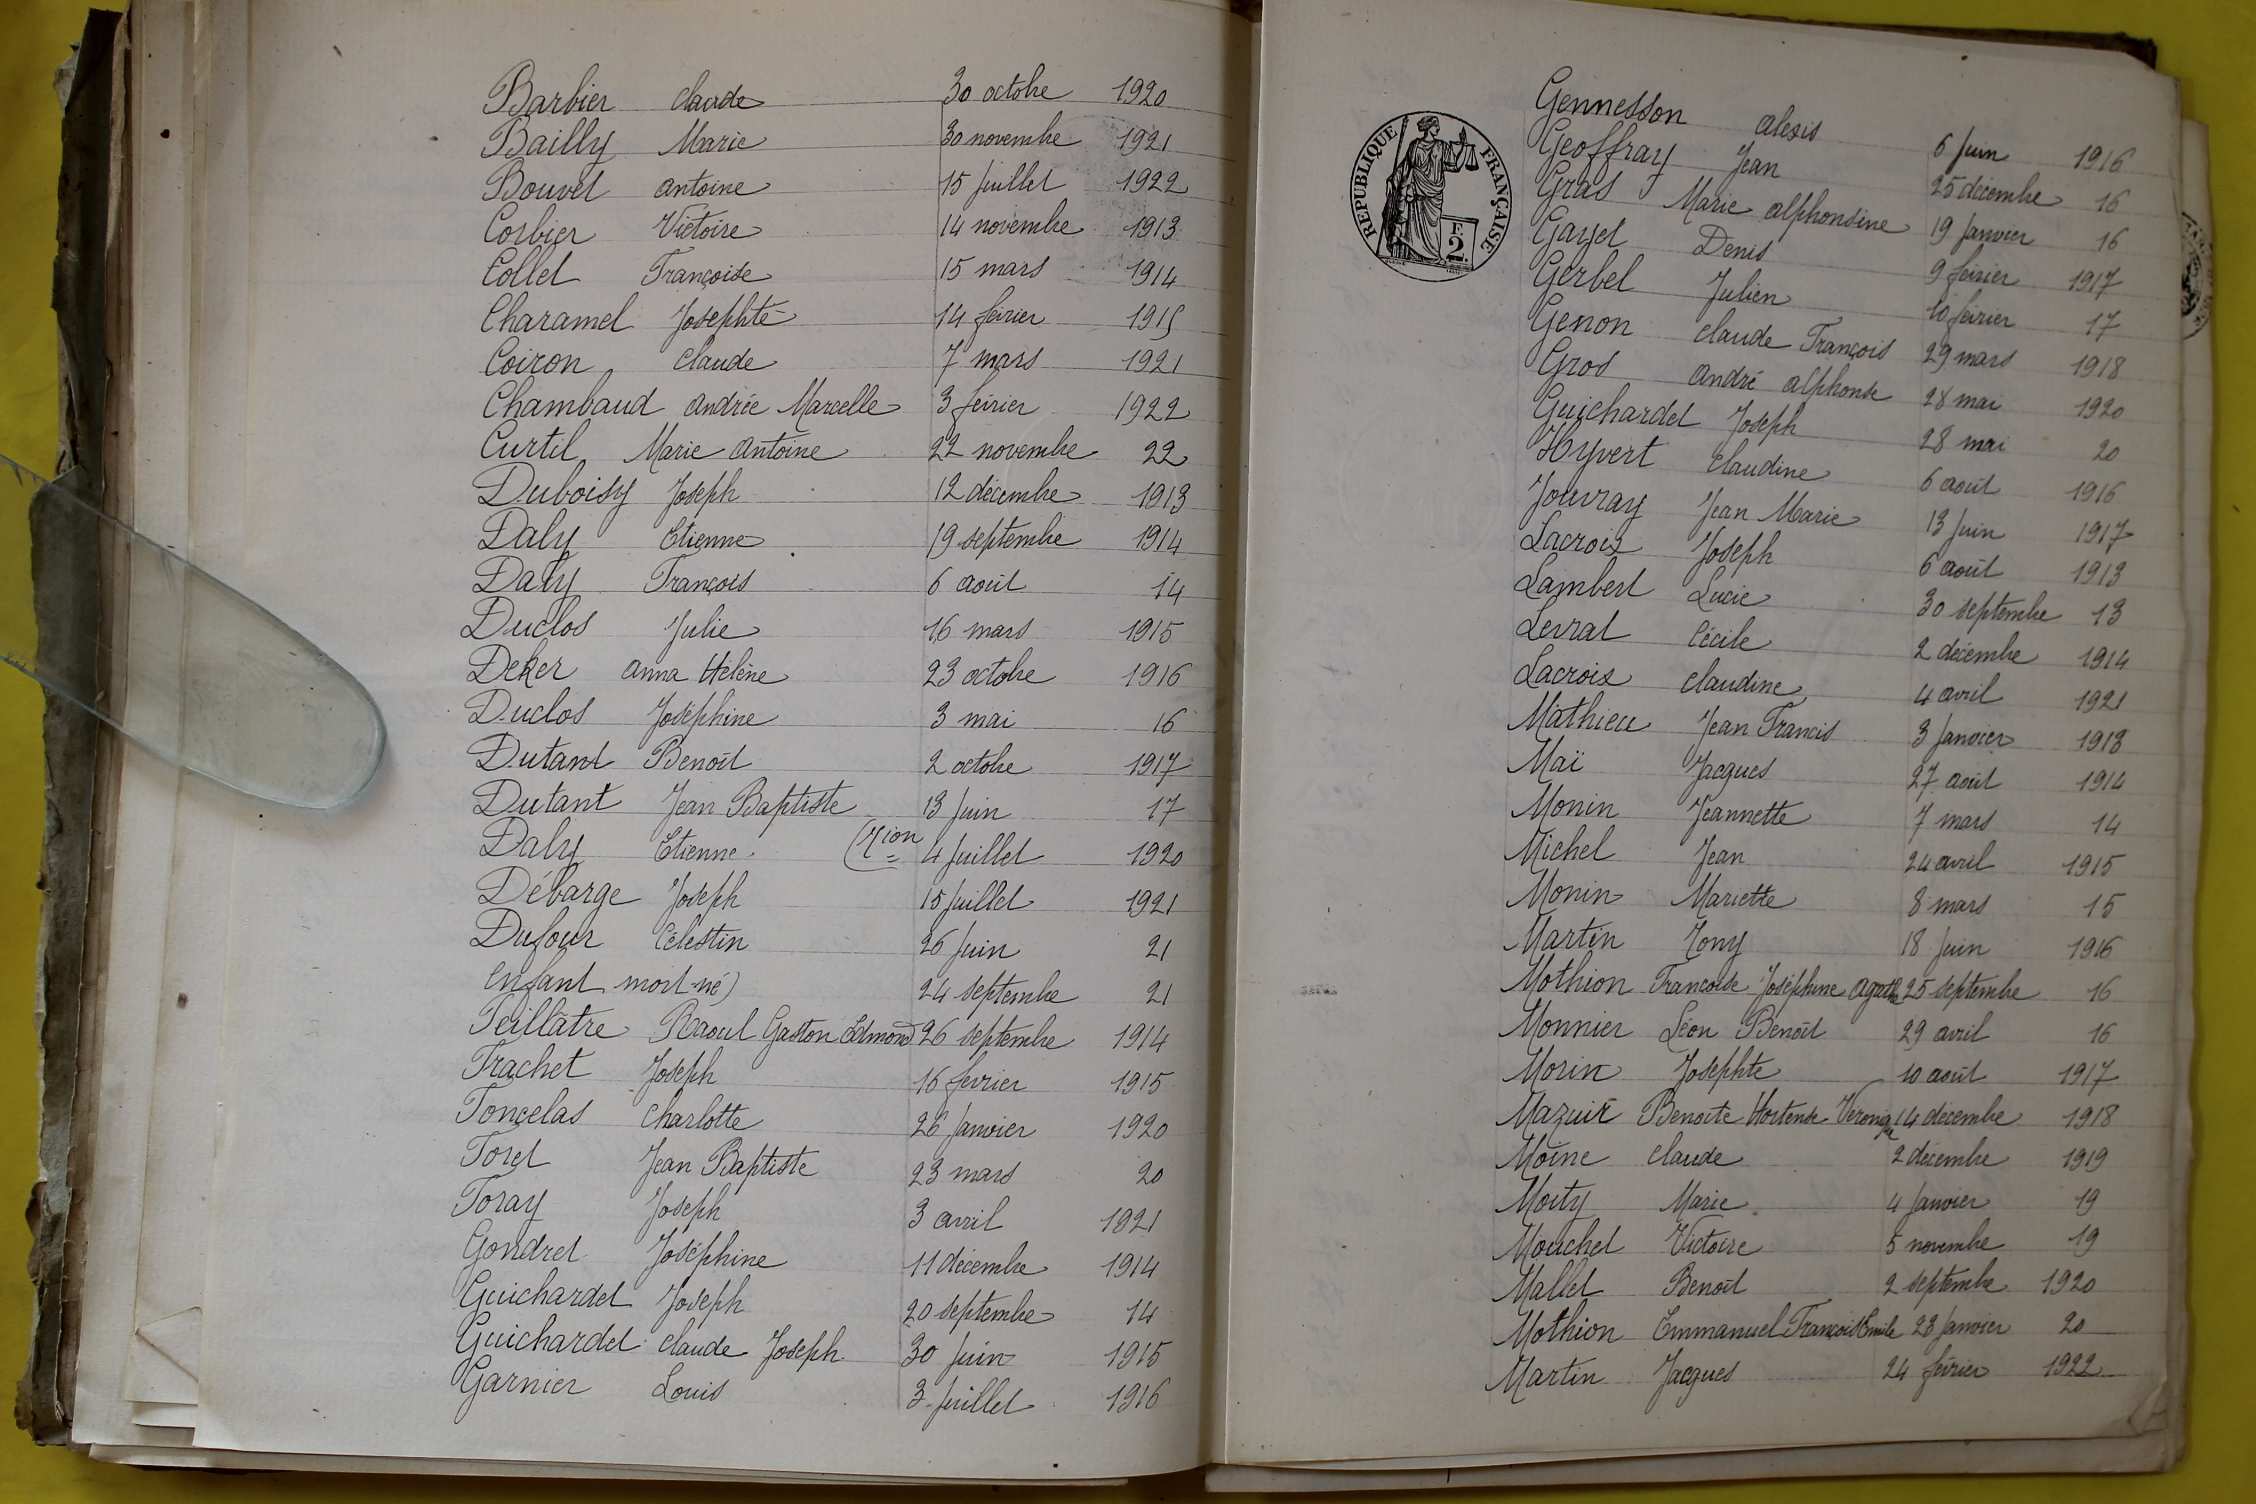 Barbier Claude 30 octobre 1920
Bailly Marie 30 novembre 1921
Bouvet Antoine 15 Juillet 1922
Corbier Victoire 14 novembre 1913
Collet Françoise 15 mars 1914
Charamel Josephte 14 février 1915
Coiron Claude 7 mars 1921
Chambaud Andrée Marcelle 3 février 1922
Curtil Marie Antoine 22 novembre 22
Duboisy Joseph 12 décembre 1913
Daly Etienne 19 septembre 1914
Daly François 6 août 14
Duclos Julie 16 mars 1915
Deker Anna Hélène 23 octobre 1916
Duclos Joséphine 3 mai 16
Dutant Benoît 2 octobre 1917
Dutant Jean Baptiste 13 Juin 17
Daly Etienne 4 Juillet 1920
Débarge Joseph 15 Juillet 1921
Dufour Célestin 26 Juin 21
Enfant mort-né) 24 septembre 21
Feillâtre Raoul Gaston Edmond 26 septembre 1914
Frachet Joseph 16 fevrier 1915
Foncelas Charlotte 26 Janvier 1920
Foret Jean Baptiste 23 mars 20
Foray Joseph 3 avril 1921
Gondret Joséphine 11 décembre 1914
Guichardet Joseph 20 septembre 14
Guichardet Claude Joseph 30 Juin 1915
Garnier Louis 3 Juillet 1916
REPUBLIQUE FRANÇAISE
F.
2.
Gennesson Alexis 6 Juin 1916
Geoffray Jean 25 décembre 16
Gras Marie Alphonsine 19 Janvier 16
Gayet Denis 9 février 1917
Gerbel Julien 10 février 17
Genon Claude François 29 mars 1918
Gros André Alphonse 28 mai 1920
Guichardet Joseph 28 mai 20
Hyvert Claudine 6 août 1916
Jouvray Jean Marie 13 Juin 1917
Lacroix Joseph 6 août 1913
Lambert Lucie 30 septembre 13
Levrat Cécile 2 décembre 1914
Lacroix Claudine 4 avril 1921
Mathieu Jean Francis 3 Janvier 1913
Maï Jacques 27 août 1914
Monin Jeannette 7 mars 14
Michel Jean 24 avril 1915
Monin Mariette 8 mars 15
Martin Tony 18 Juin 1916
Mothion Francoise Joséphine Agathe 25 septembre 16
Monnier Léon Benoît 29 avril 16
Morin Josephte 10 août 1917
Mazuir Benoite Hortense 14 décembre 1918
Moine Claude 2 décembre 1919
Moity Marie 4 Janvier 19
Mouchet Victoire 5 novembre 19
Mallet Benoît 2 septembre 1920
Mothion Emmanuel François Emile 23 Janvier 20
Martin Jacques 24 février 1922